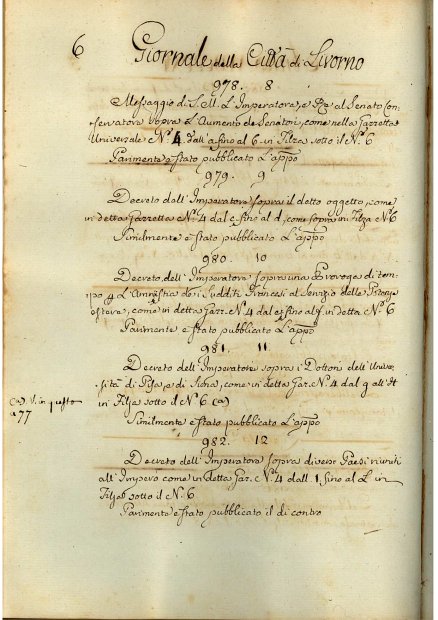 6 Giornale della Città di Livorno
978. 8
Messaggio di S. M. L'Imperatore, e Re al Senato Con-
servatore sopra L'Aumento de Senatori, come nella Gazzetta
Universale N.º 4. dall'a fino al 6. in Filza sotto il N.º 6
Parimente è stato pubblicato L'appº
979. 9
Decreto dell'Imperatore sopra il detto oggetto, come
in detta Gazzetta N.º 4 dal c fino al d, come sopra in Filza N.º 6
Similmente è stato pubblicato L'appº
980. 10
Decreto dell'Imperatore sopra una Proroga di tem-
po p L'Amnistia de i Sudditi Francesi al Servizio delle
estere, come in detta Gaz. N.º 4 dal e fino al f. in detta N.º 6
Parimente è stato pubblicato L'appº
981. 11
Decreto dell'Imperatore sopra i Dottori dell'Univer-
sità di Pisa, e di Siena, come in detta Gaz. N.º 4 dal g all'H
in Filza sotto il N.º 6 (a)
(a) V. in questo
a 77
Similmente è stato pubblicato L'appº
982. 12
Decreto dell'Imperatore sopra diversi Paesi riuniti
all'Impero come in detta Gaz. N.º 4 dall'I. fino al L in
Filza sotto il N.º 6
Parimente è stato pubblicato il di contro